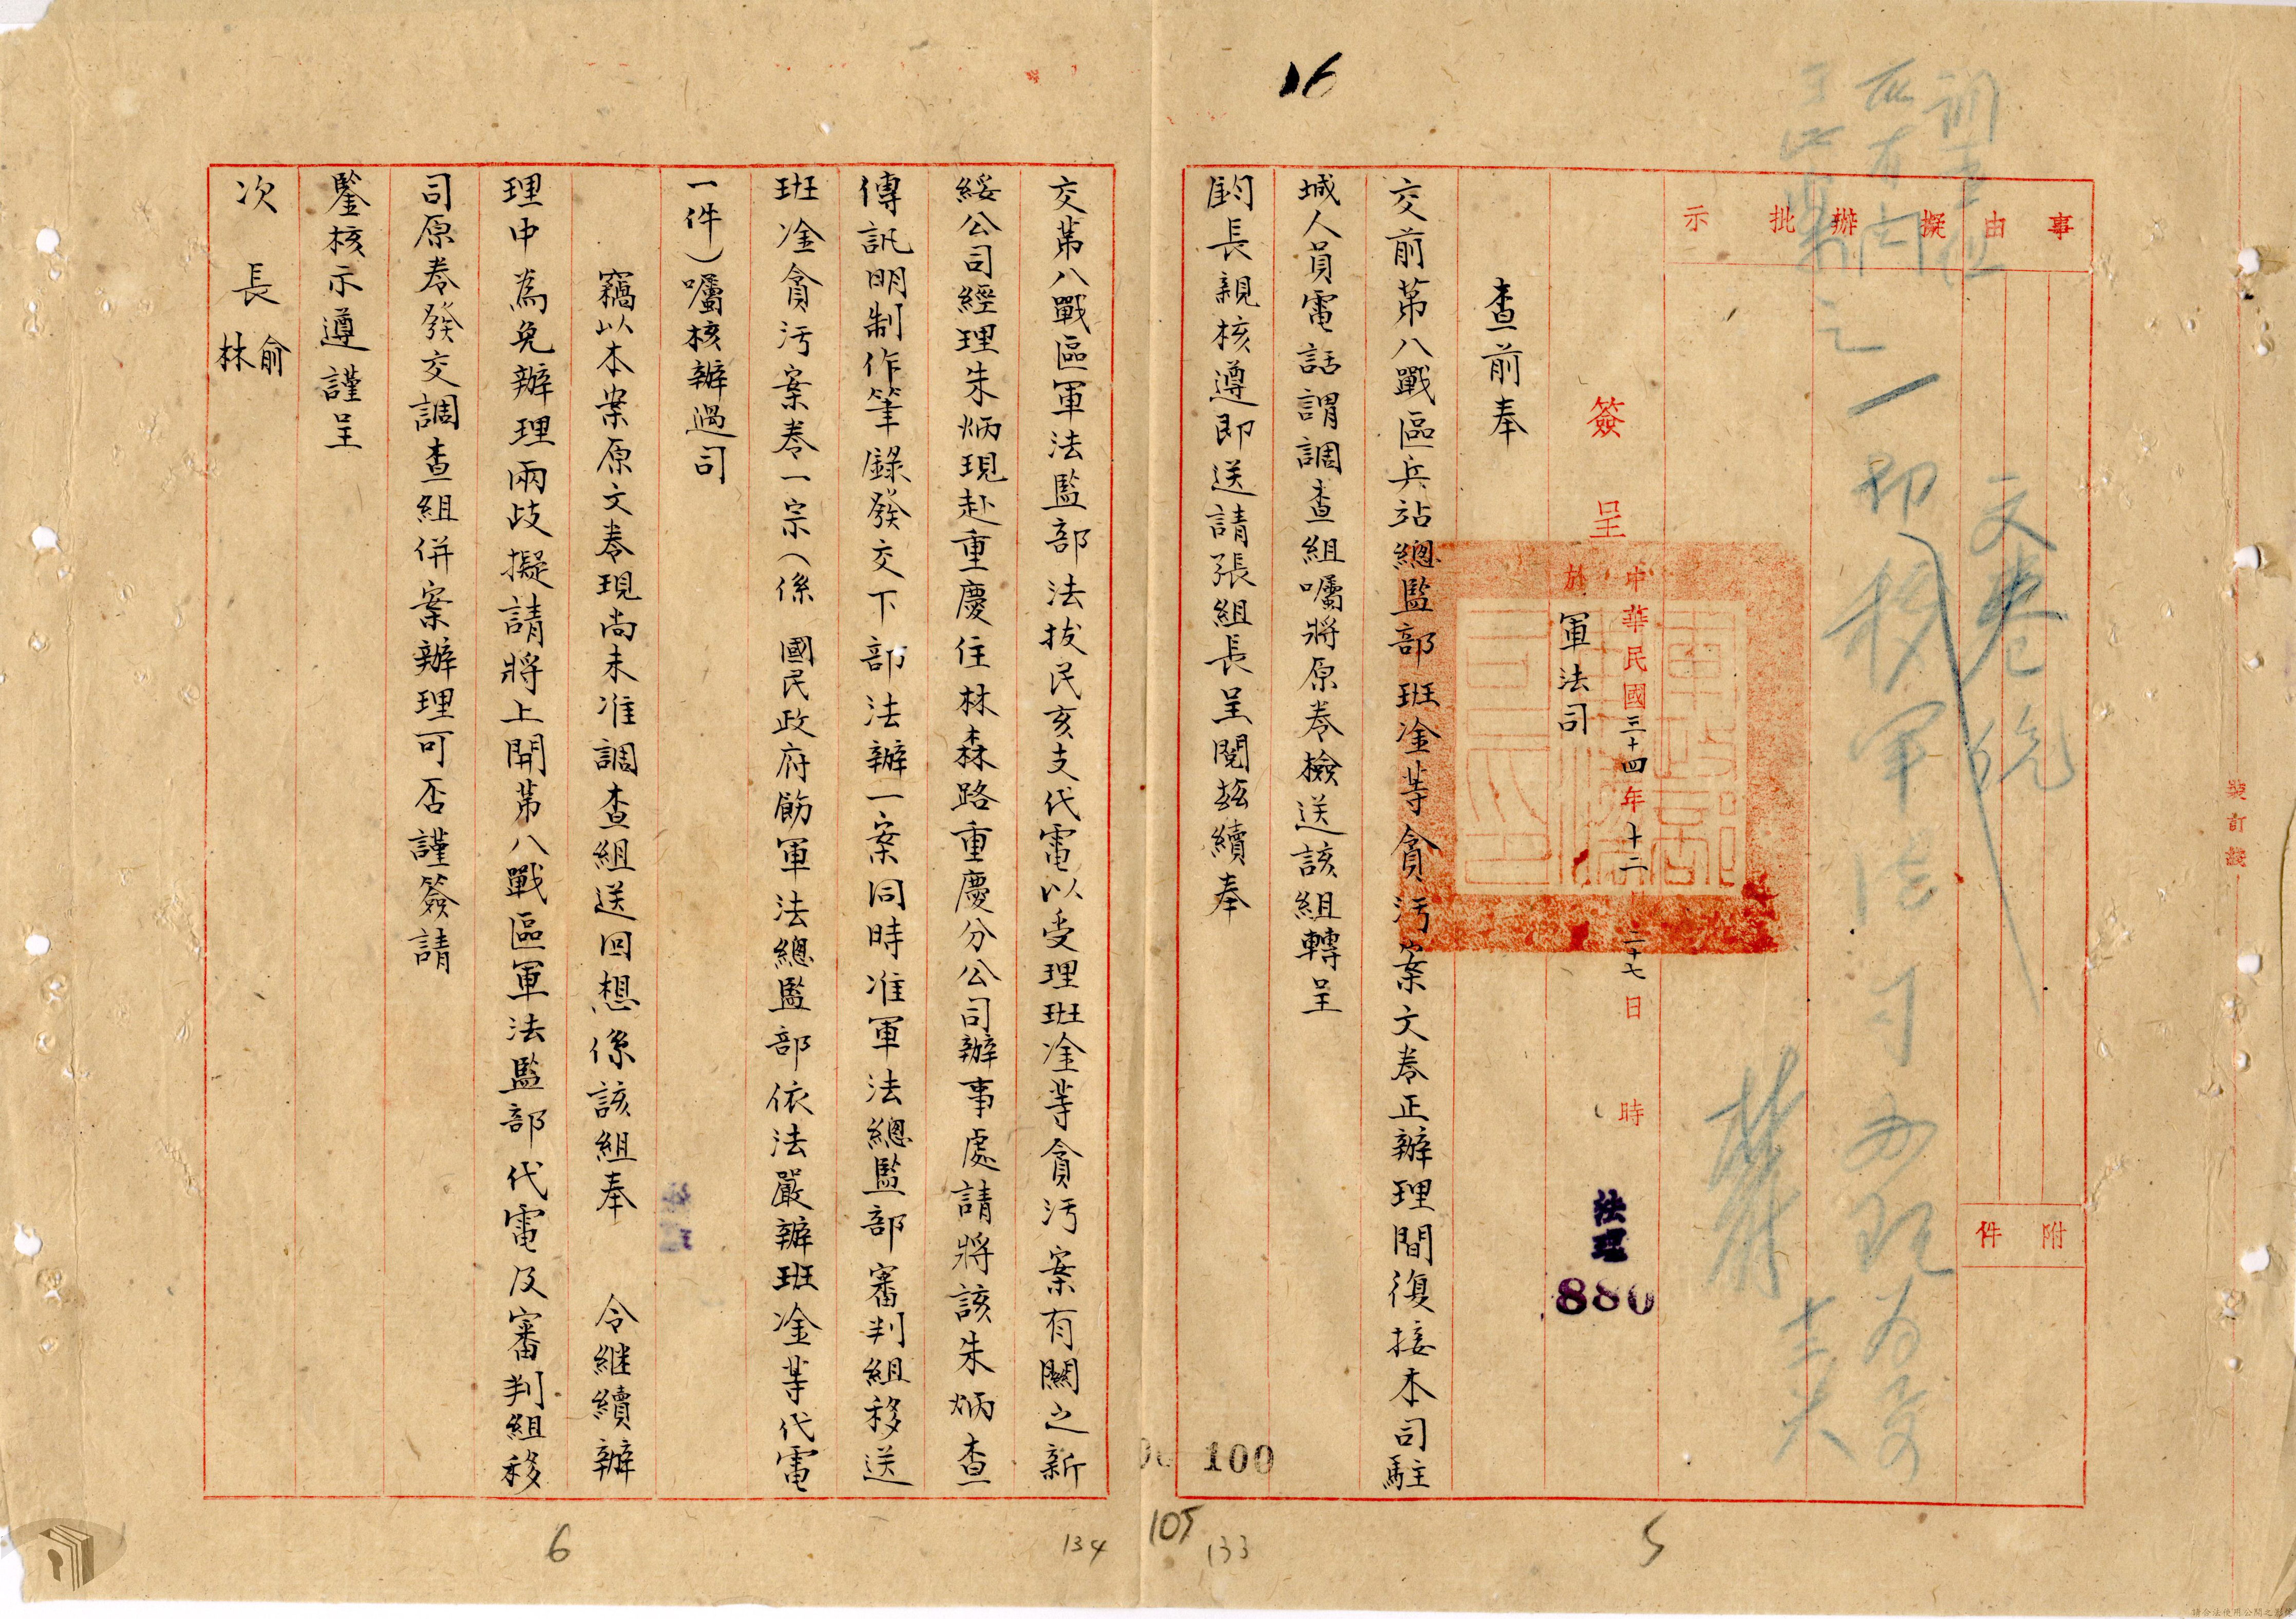 16
事由
擬辦
批示
附件
裝訂線
文卷
簽呈
中華民國三十四年十二月二十七日 時
於 軍法司
法理
880
查前奉
交前第八戰區兵站總監部班淦等貪污案文卷正辦理間復接本司駐
城人員電話謂調查組囑將原卷檢送該組轉呈
鈞長親核遵即送請張組長呈閱茲續奉
100
105
133
5
交第八戰區軍法監部法拔民亥支代電以受理班淦等貪污案有關之新
綏公司經理朱炳現赴重慶住林森路重慶分公司辦事處請將該朱炳查
傳訊明制作筆錄發交下部法辦一案同時准軍法總監部審判組移送
班淦貪污案卷一宗(係 國民政府飭軍法總監部依法嚴辦班淦等代電
一件)囑核辦過司
竊以本案原文卷現尚未准調查組送回想係該組奉 令继續辦
理中為免辦理兩歧擬請將上開第八戰區軍法監部代電及審判組移
司原卷發交調查組併案辦理可否謹簽請
鑒核示遵謹呈
次長 俞
林
134
6